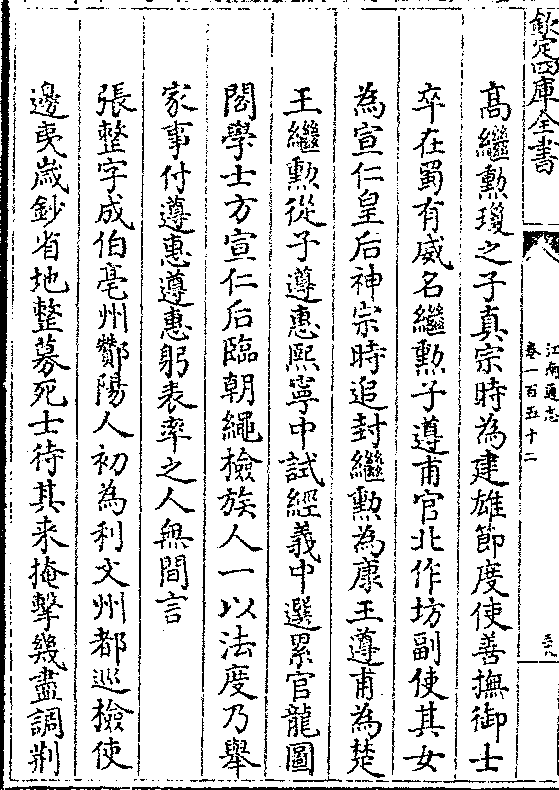 欽定四庫全書
江南通志
卷一百五十二
髙繼勲瓊之子真宗時為建雄節度使善撫御士
卒在蜀有威名繼勲子遵甫官北作坊副使其女
為宣仁皇后神宗時追封繼勲為康王遵甫為楚
王繼勲從子遵惠熙寧中試經義中選累官龍圖
閣學士方宣仁后臨朝繩檢族人一以法度乃舉
家事付遵惠遵惠躬表率之人無間言
張整字成伯亳州酇陽人初為利文州都巡檢使
邊夷歲鈔省地整募死士待其来掩擊幾盡調荆